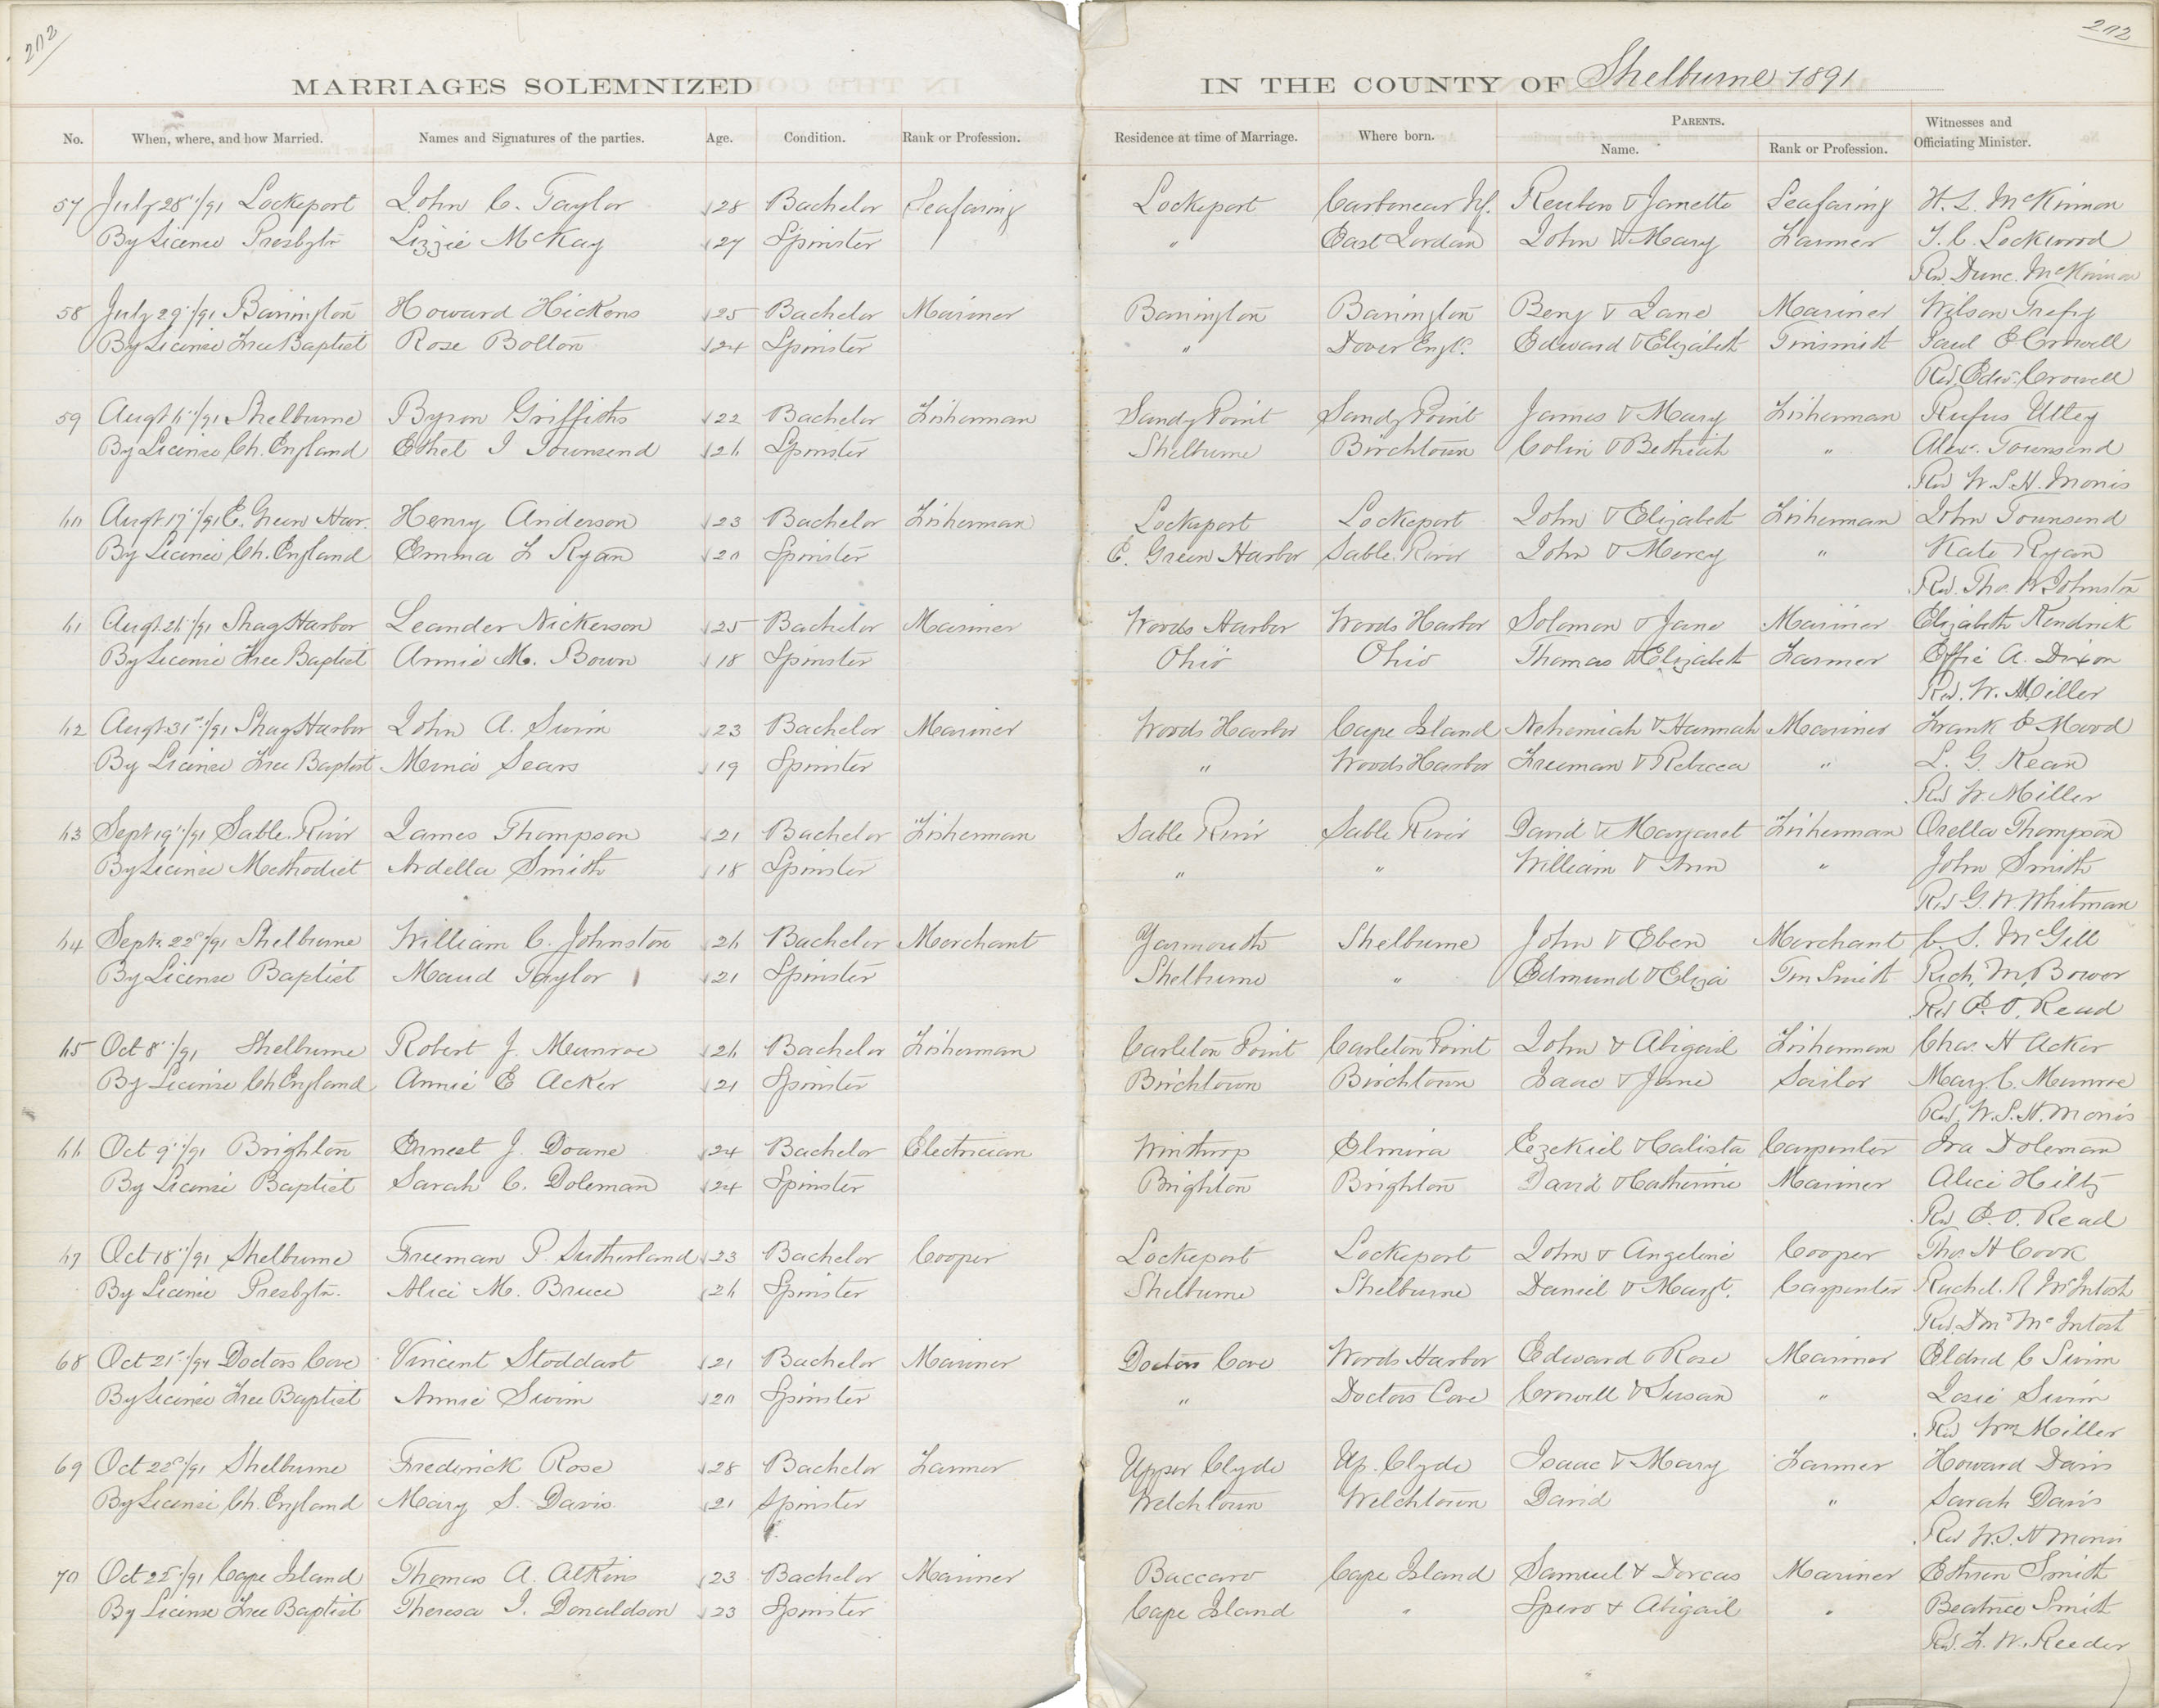 202
202
MARRIAGES SOLEMNIZED IN THE COUNTY OF Shelburne 1891
No. When, where, and how Married. Names and Signatures of the parties. Age. Condition. Rank or Profession. Residence at time of Marriage. Where born. PARENTS. Name. Rank or Profession. Witnesses and Officiating Minister.
57 July 28th/91 Lockeport John C. Taylor 28 Bachelor Seafaring Lockeport Carbonear Nf. Reuben & Jannette Seafaring H. L. McKinnon
By License Presbytn Lizzie McKay 27 Spinster " East Jordan John & Mary Farmer T. C. Lockwood
Rev Dunc. McKinnon
58 July 29th/91 Barrington Howard Hickens 25 Bachelor Mariner Barrington Barrington Benj & Jane Mariner Wilson Trefry
By License Free Baptist Rose Bolton 24 Spinster " Dover Engld. Edward & Elizabeth Tinsmith Paul E Crowell
Rev. Edw. Crowell
59 Augt 6th/91 Shelburne Byron Griffiths 22 Bachelor Fisherman Sandy Point Sandy Point James & Mary Fisherman Rufus Utley
By License Ch. England Ethel I Townsend 26 Spinster Shelburne Birchtown Colin & Bethiah " Alex. Townsend
Rev W. S. H. Morris
60 Augt 17th/91 E. Green Har. Henry Anderson 23 Bachelor Fisherman Lockeport Lockeport John & Elizabeth Fisherman John Townsend
By License Ch. England Emma F Ryan 20 Spinster E. Green Harbor Sable River John & Mercy " Kate Ryan
Rev. Tho. W Johnston
61 Augt. 26th/91 Shag Harbor Leander Nickerson 25 Bachelor Mariner Woods Harbor Woods Harbor Solomon & Jane Mariner Elizabeth Kendrick
By License Free Baptist Annie M. Bown 18 Spinster Ohio Ohio Thomas & Elizabeth Farmer Effie A. Dixon
Rev. W. Miller
62 Augt 31st/91 Shag Harbor John A. Swim 23 Bachelor Mariner Woods Harbor Cape Island Nehemiah & Hannah Mariner Frank E Mood
By License Free Baptist Mina Sears 19 Spinster " Woods Harbor Freeman & Rebecca " L. G. Kean
Rev W. Miller
63 Sept 19th/91 Sable River James Thompson 21 Bachelor Fisherman Sable River Sable River David & Margaret Fisherman Orella Thompson
By License Methodist Ardella Smith 18 Spinster " " William & Ann " John Smith
Rev G. W. Whitman
64 Sept. 22d/91 Shelburne William C. Johnston 26 Bachelor Merchant Yarmouth Shelburne John & Eben Merchant C. S. McGill
By License Baptist Maud Taylor 21 Spinster Shelburne " Edmund & Eliza Tin Smith Rich. M. Bower
Rev E. O. Read
65 Oct 8th/91 Shelburne Robert J. Munroe 26 Bachelor Fisherman Carleton Point Carleton Point John & Abigail Fisherman Chas. H Acker
By License Ch England Annie E Acker 21 Spinster Birchtown Birchtown Isaac & Jane Sailor Mary C. Munroe
Rev. W. S. H. Morris
66 Oct 9th/91 Brighton Ernest J. Doane 24 Bachelor Electrician Winthrop Elmira Ezekiel & Calista Carpenter Ira Doleman
By License Baptist Sarah C. Doleman 24 Spinster Brighton Brighton David & Catherine Mariner Alice Hiltz
Rev E. O. Read
67 Oct 18th/91 Shelburne Freeman P. Sutherland 23 Bachelor Cooper Lockeport Lockeport John & Angeline Cooper Tho. H Cook
By License Presbytn. Alice M. Bruce 26 Spinster Shelburne Shelburne Daniel & Margt. Carpenter Rachel. R McIntosh
Rev. McIntosh
68 Oct 21st/91 Doctors Cove Vincent Stoddart 21 Bachelor Mariner Doctors Cove Woods Harbor Edward & Rose Mariner Eldred C Swim
By License Free Baptist Annie Swim 20 Spinster " Doctors Cove Crowell & Susan " Josie Swim
Rev Wm Miller
69 Oct 22d/91 Shelburne Frederick Rose 28 Bachelor Farmer Upper Clyde Up. Clyde Isaac & Mary Farmer Howard Davis
By License Ch. England Mary S. Davis 21 Spinster Welchtown Welchtown David " Sarah Davis
Rev W. S. H Morris
70 Oct 22d/91 Cape Island Thomas A. Atkins 23 Bachelor Mariner Baccaro Cape Island Samuel & Dorcas Mariner Ethren Smith
By License Free Baptist Theresa J. Donaldson 23 Spinster Cape Island " Spero & Abigail " Beatrice Smith
Rev. F. W. Reeder